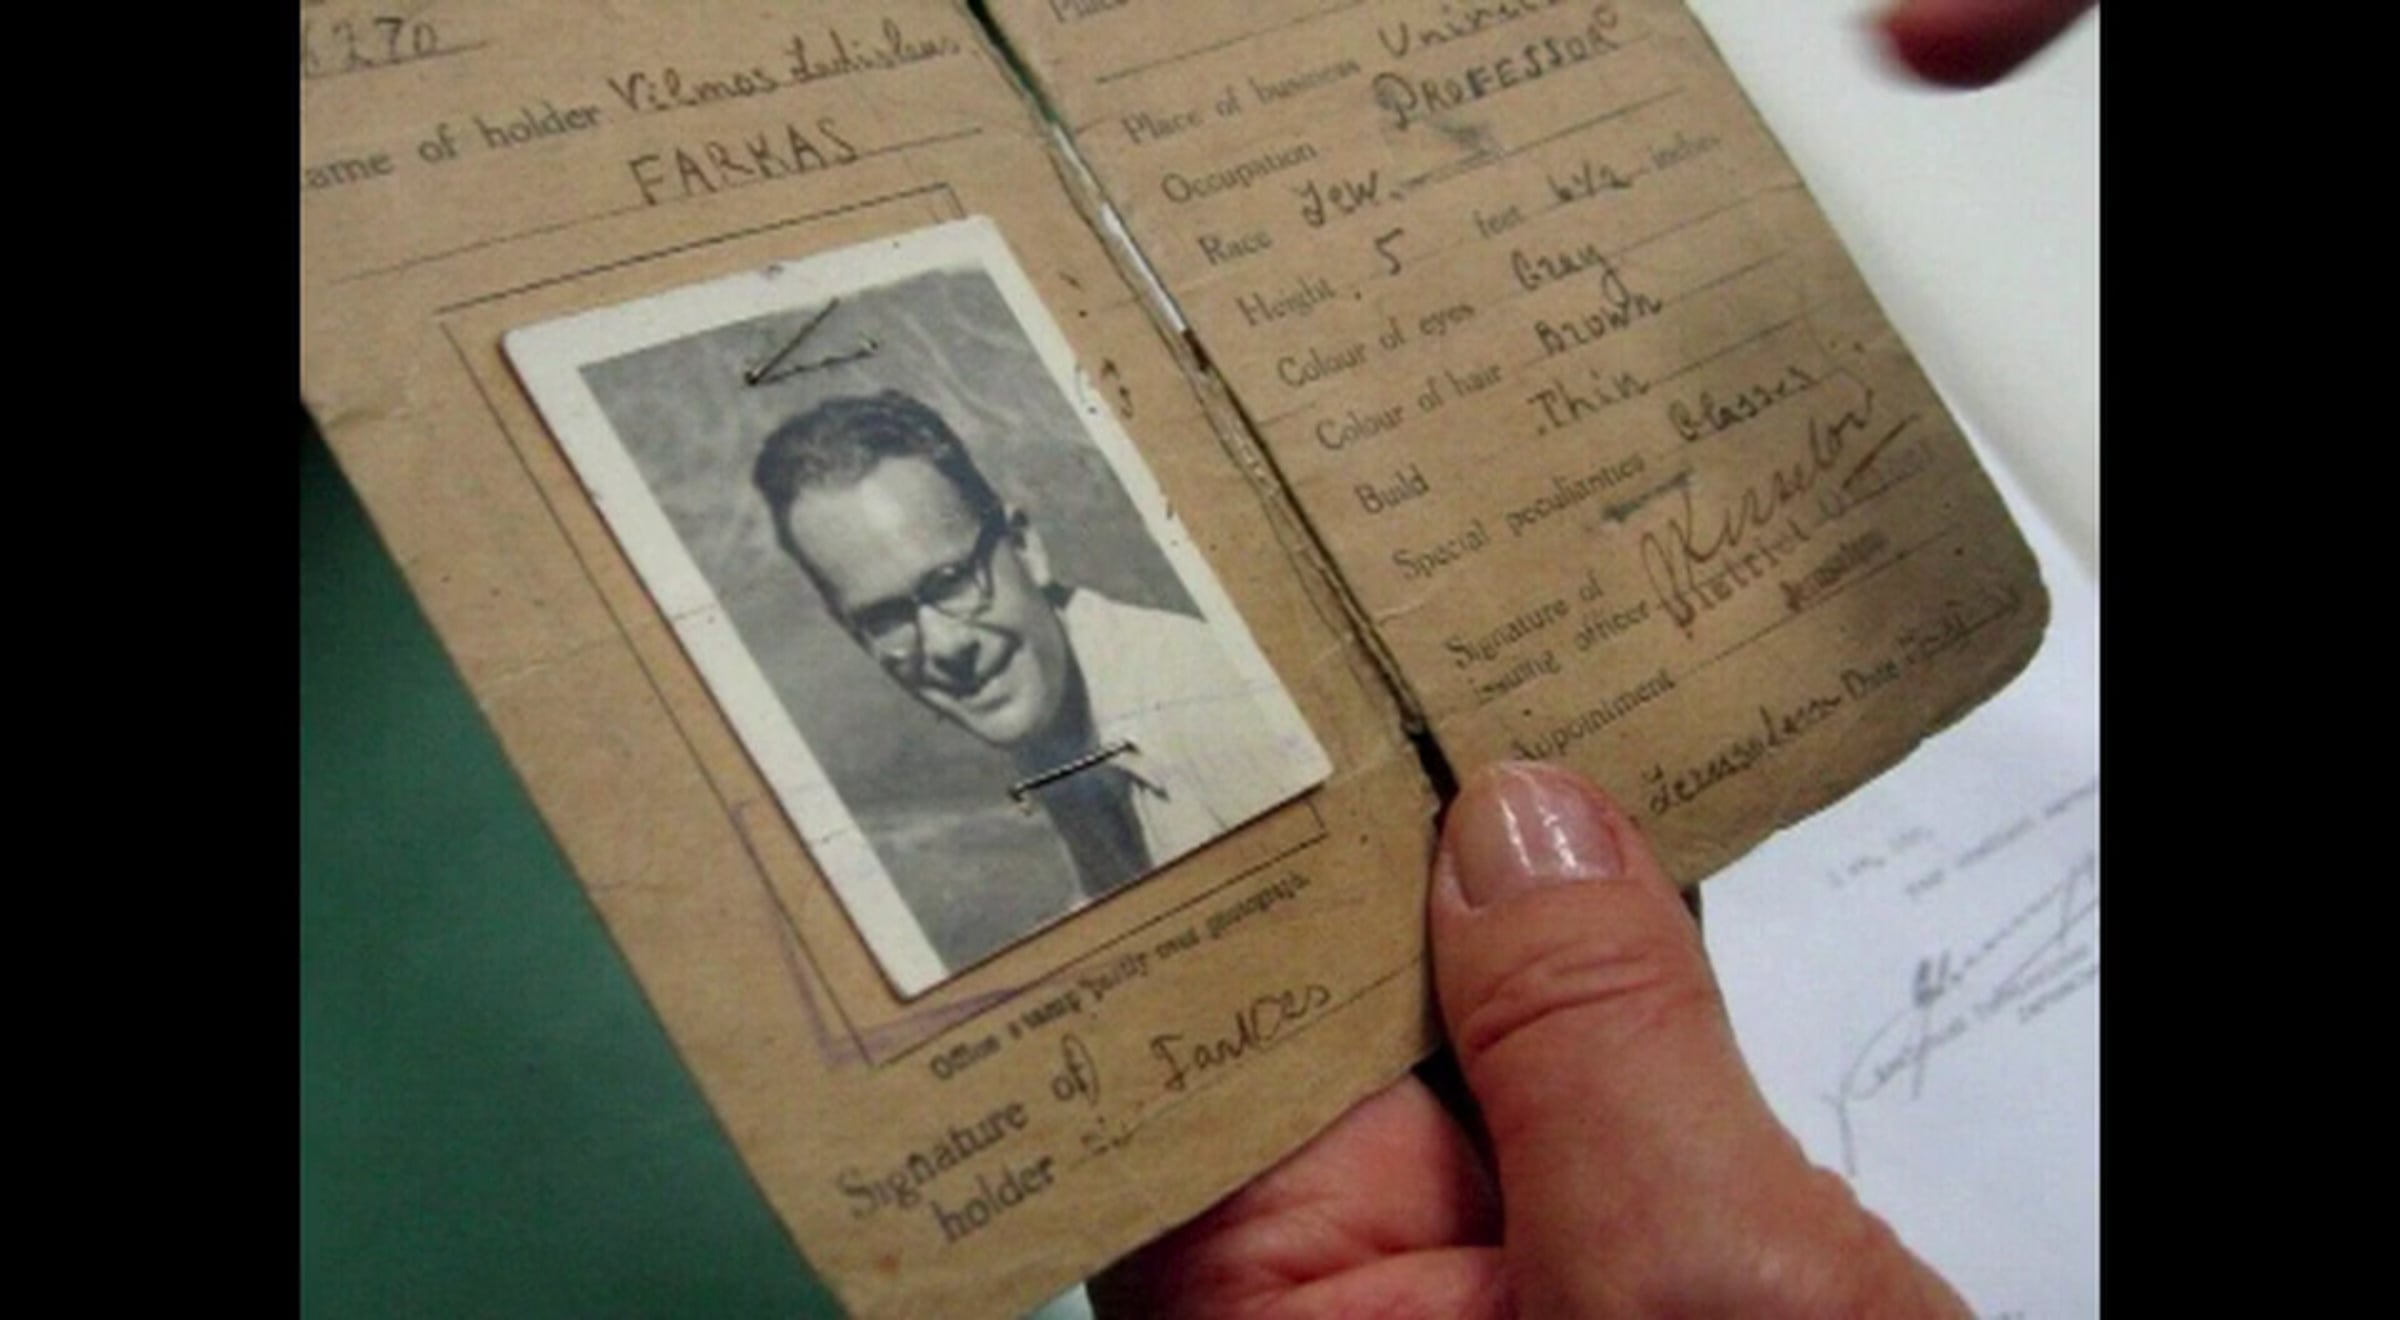 270
ame of holder Vilmos Ladislaus
FARKAS
Office stamp partly over photograph.
Signature of
holder Farkas
Place
Place of business
Occupation PROFESSOR
Race Jew.
Height 5 feet 6½ inches
Colour of eyes Gray
Colour of hair Brown
Build Thin
Special peculiarities Glasses
Signature of
issuing officer
District
Appointment Jerusalem
Jerusalem Date